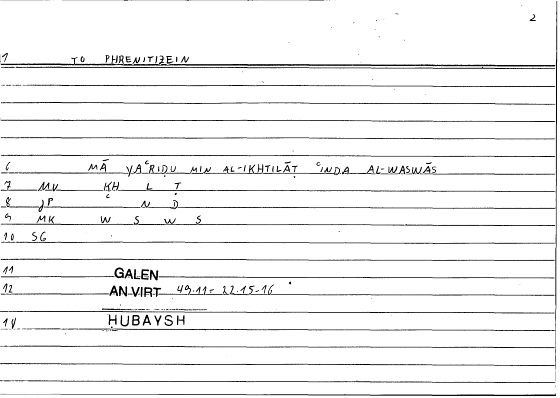 2
1 TO PHRENITIZEIN
6 MĀ YAʿRIḌU MIN AL-IKHTILĀṬ ʿINDA AL-WASWĀS
7 MV KH L Ṭ
8 JP ʿ N D
9 MK W S W S
10 SG
11 GALEN
12 AN VIRT 49.11 = 22.15-16
14 HUBAYSH